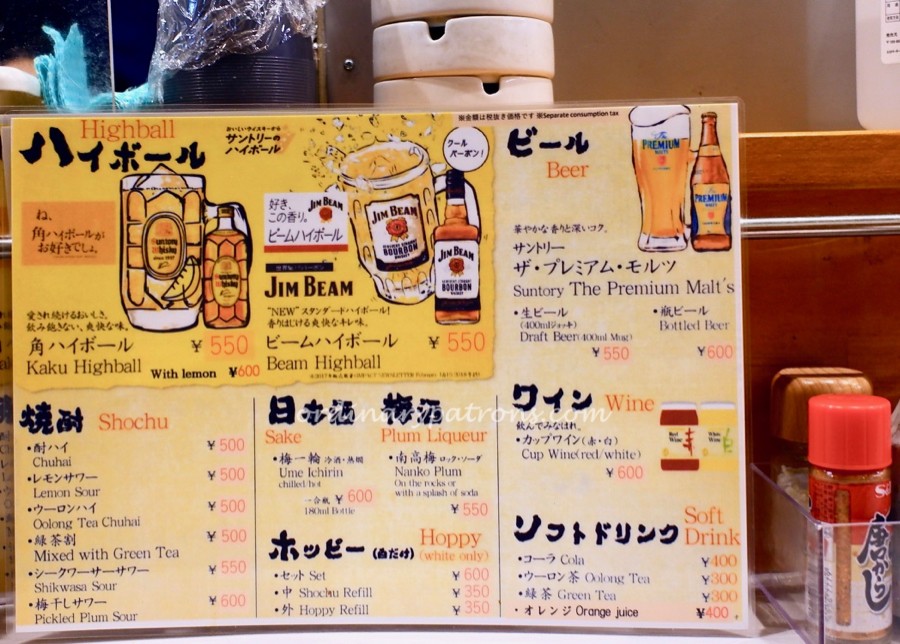 ※金額は税抜き価格です ※Separate consumption tax
Highball
ハイボール
おいしいウイスキーから
サントリーの
ハイボール
ね、
角ハイボールが
お好きでしょ。
Suntory
Whisky
愛され続けるおいしさ。
飲み飽きない、爽快な味。
角ハイボール ¥550
Kaku Highball
With lemon ¥600
クール
バーボン!
好き、
この香り。
JIM BEAM
ビームハイボール
JIM BEAM
KENTUCKY STRAIGHT
BOURBON
WHISKEY
JIM BEAM
BOURBON
JIM BEAM
"NEW" スタンダードハイボール!
香りはじける爽快なキレ味。
ビームハイボール ¥550
Beam Highball
ビール
Beer
PREMIUM
MALT'S
PREMIUM
華やかな香りと深いコク。
サントリー
ザ・プレミアム・モルツ
Suntory The Premium Malt's
・生ビール
(400mlジョッキ)
Draft Beer(400ml Mug)
¥550
・瓶ビール
Bottled Beer
¥600
焼酎 Shochu
・酎ハイ ¥500
Chuhai
・レモンサワー ¥500
Lemon Sour
・ウーロンハイ ¥500
Oolong Tea Chuhai
・緑茶割 ¥500
Mixed with Green Tea
・シークワーサーサワー ¥550
Shikwasa Sour
・梅干しサワー ¥600
Pickled Plum Sour
日本酒
Sake
・梅一輪 冷酒・熱燗
Ume Ichirin
chilled/hot
一合瓶 ¥600
180ml Bottle
梅酒
Plum Liqueur
・南高梅 ロック・ソーダ
Nanko Plum
On the rocks or
with a splash of soda
¥550
ordinarypatrons.com
ホッピー(白だけ) Hoppy
(white only)
・セット Set ¥600
・中 Shochu Refill ¥350
・外 Hoppy Refill ¥350
ワイン Wine
飲んでみなはれ。
・カップワイン(赤・白)
Cup Wine(red/white)
¥600
Red
Wine
White
Wine
ソフトドリンク Soft
Drink
・コーラ Cola ¥400
・ウーロン茶 Oolong Tea ¥300
・緑茶 Green Tea ¥300
・オレンジ Orange juice ¥400
唐がらし